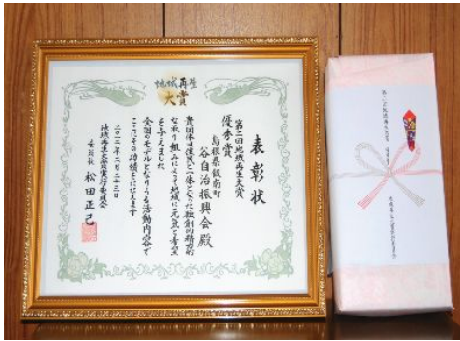 地域再生
大賞
表彰状
第二回地域再生大賞
優秀賞
島根県飯南町
谷自治振興会 殿
貴団体は住民と一体となった独創的精力的
な取り組みによって地域に元気と希望
を与えました
全国のモデルとなりうる活動内容で
ここにその功績をたたえます
二〇一二年二月二十三日
地域再生大賞実行委員会
委員長 松田正己